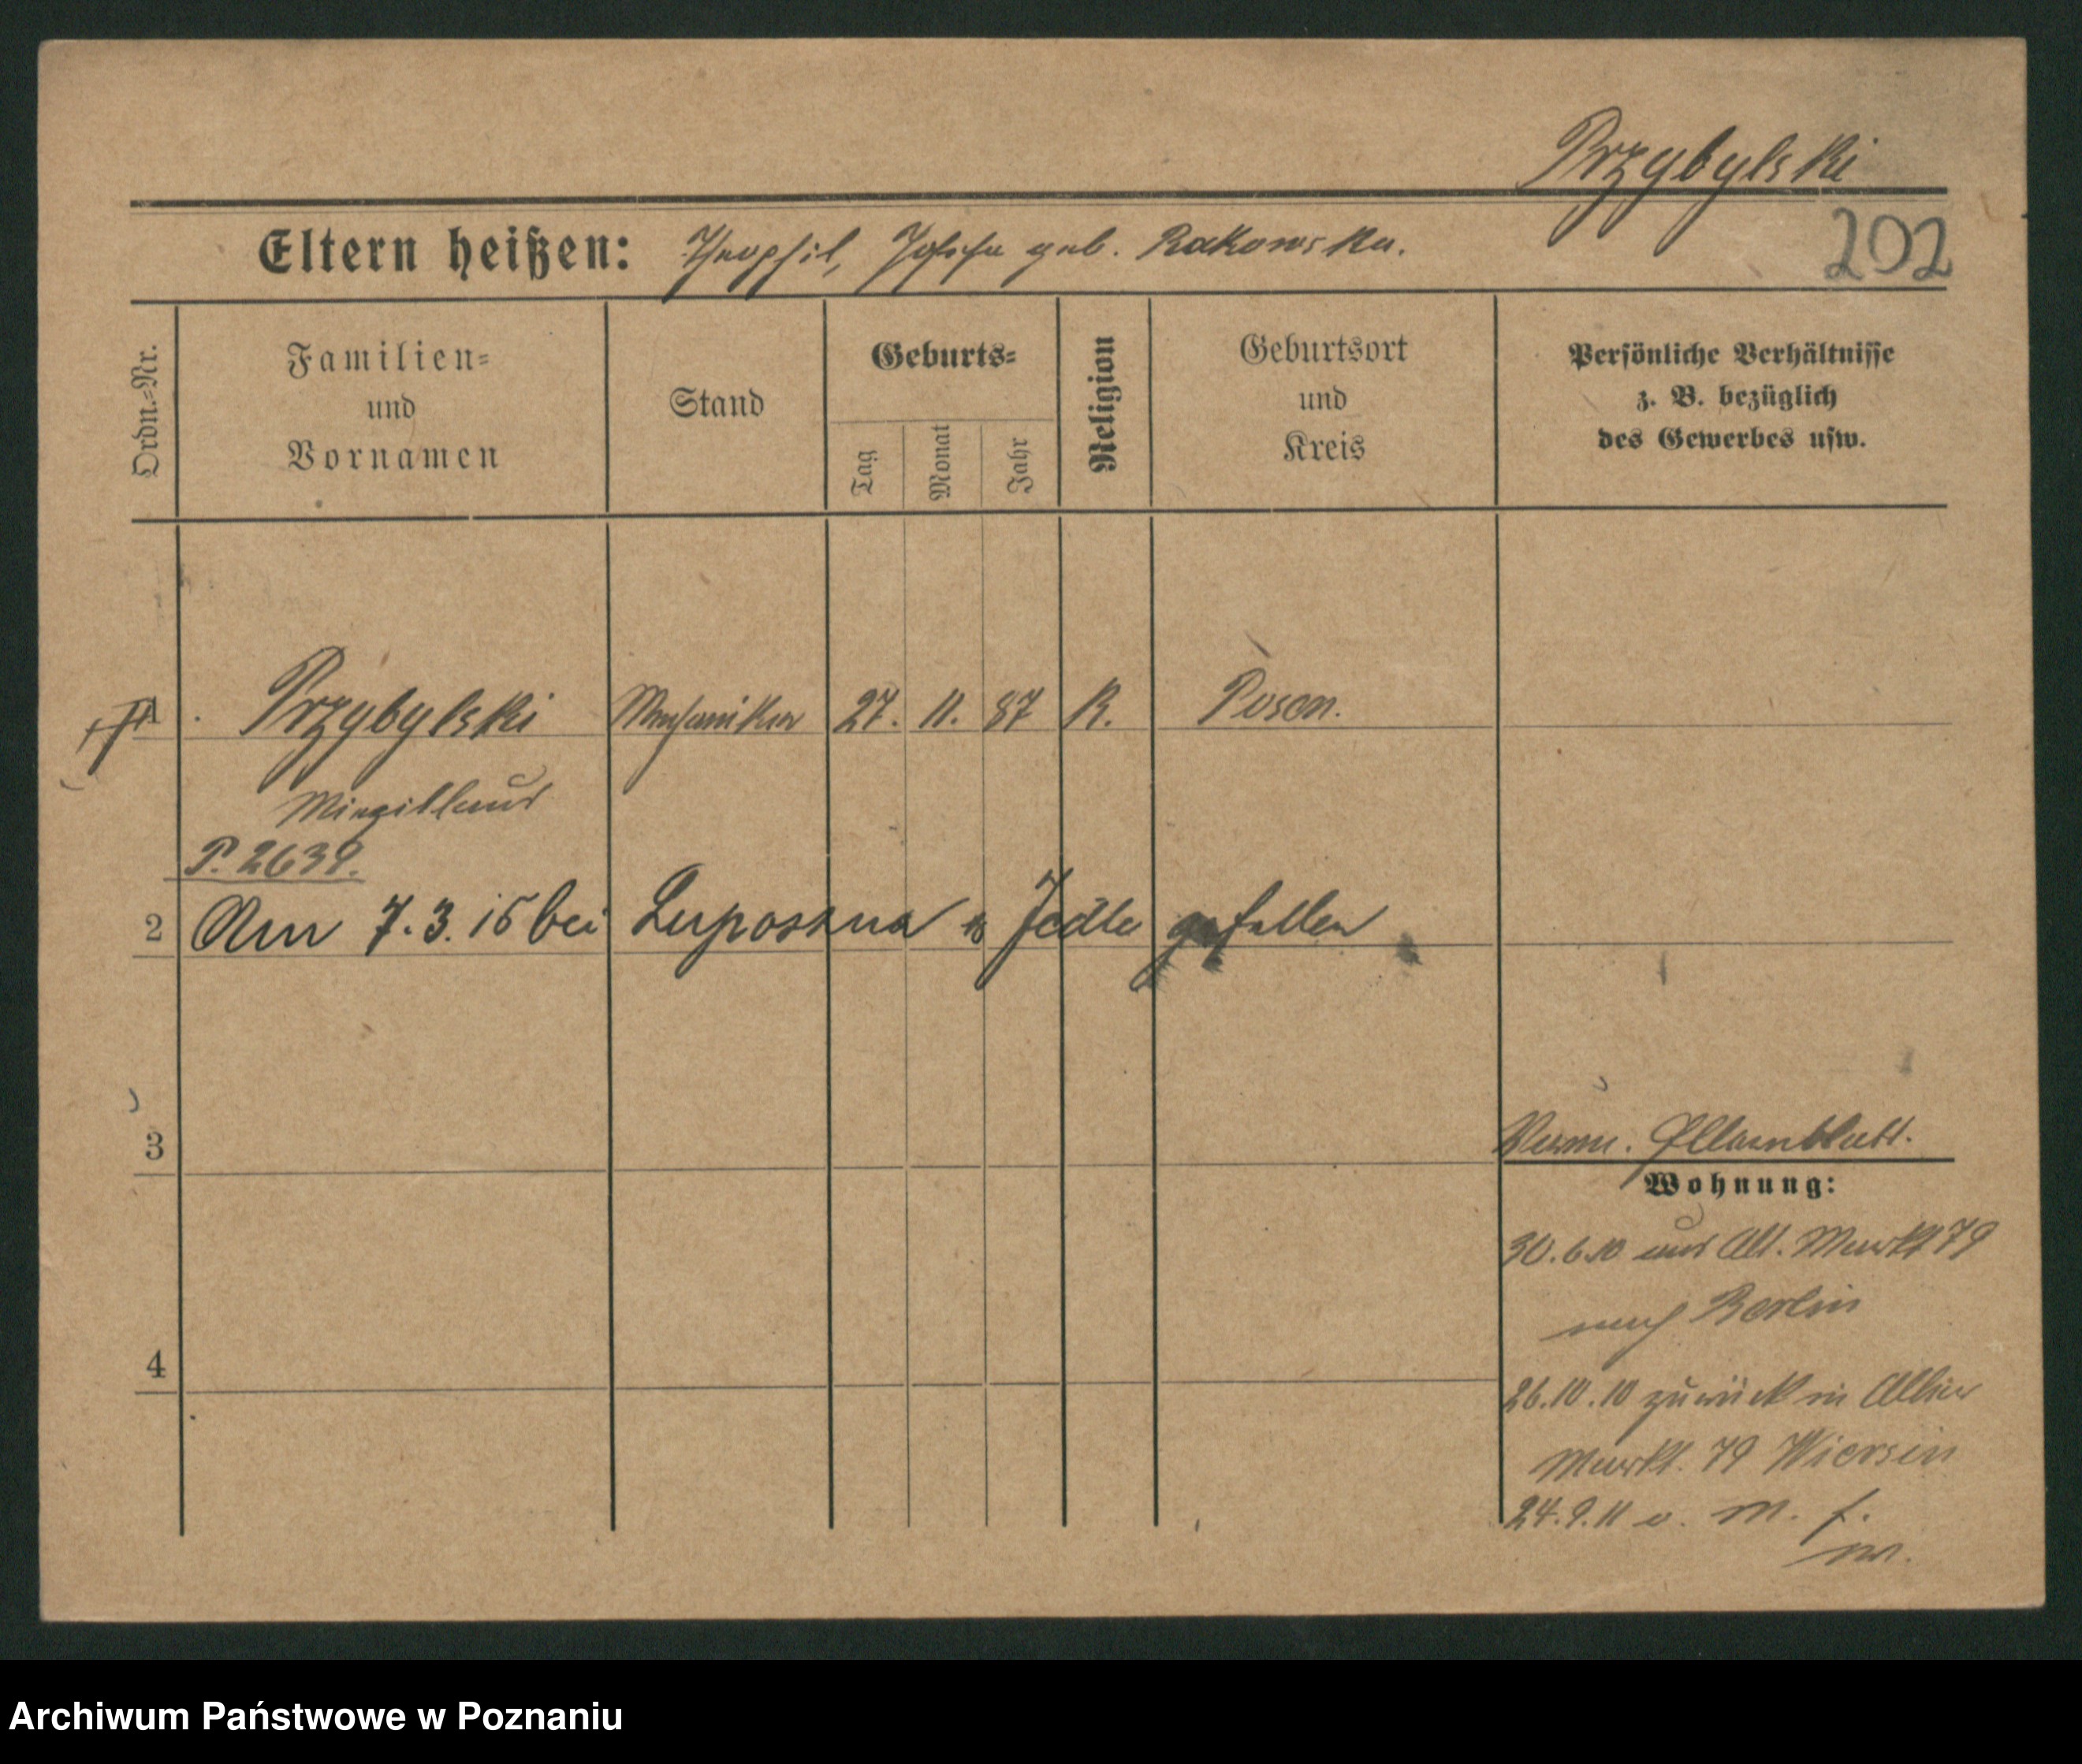 Przybylski
202
Eltern heißen: Theophil, Josefa geb. Rakowska.
Ordn.-Nr.
Familien-
und
Vornamen
Stand
Geburts-
Tag
Monat
Jahr
Religion
Geburtsort
und
Kreis
Persönliche Verhältnisse
z. B. bezüglich
des Gewerbes usw.
1 Przybylski Mechaniker 27. 11. 87 K. Posen.
P. 2639.
2 Am 7.3.15 bei Jedle gefallen
3
Wohnung:
30.6.10 aus Alt. Markt 79
nach Berlin
4
26.10.10 zurück in Alter
Markt. 79
24.9.11 v. M. f.
Archiwum Państwowe w Poznaniu